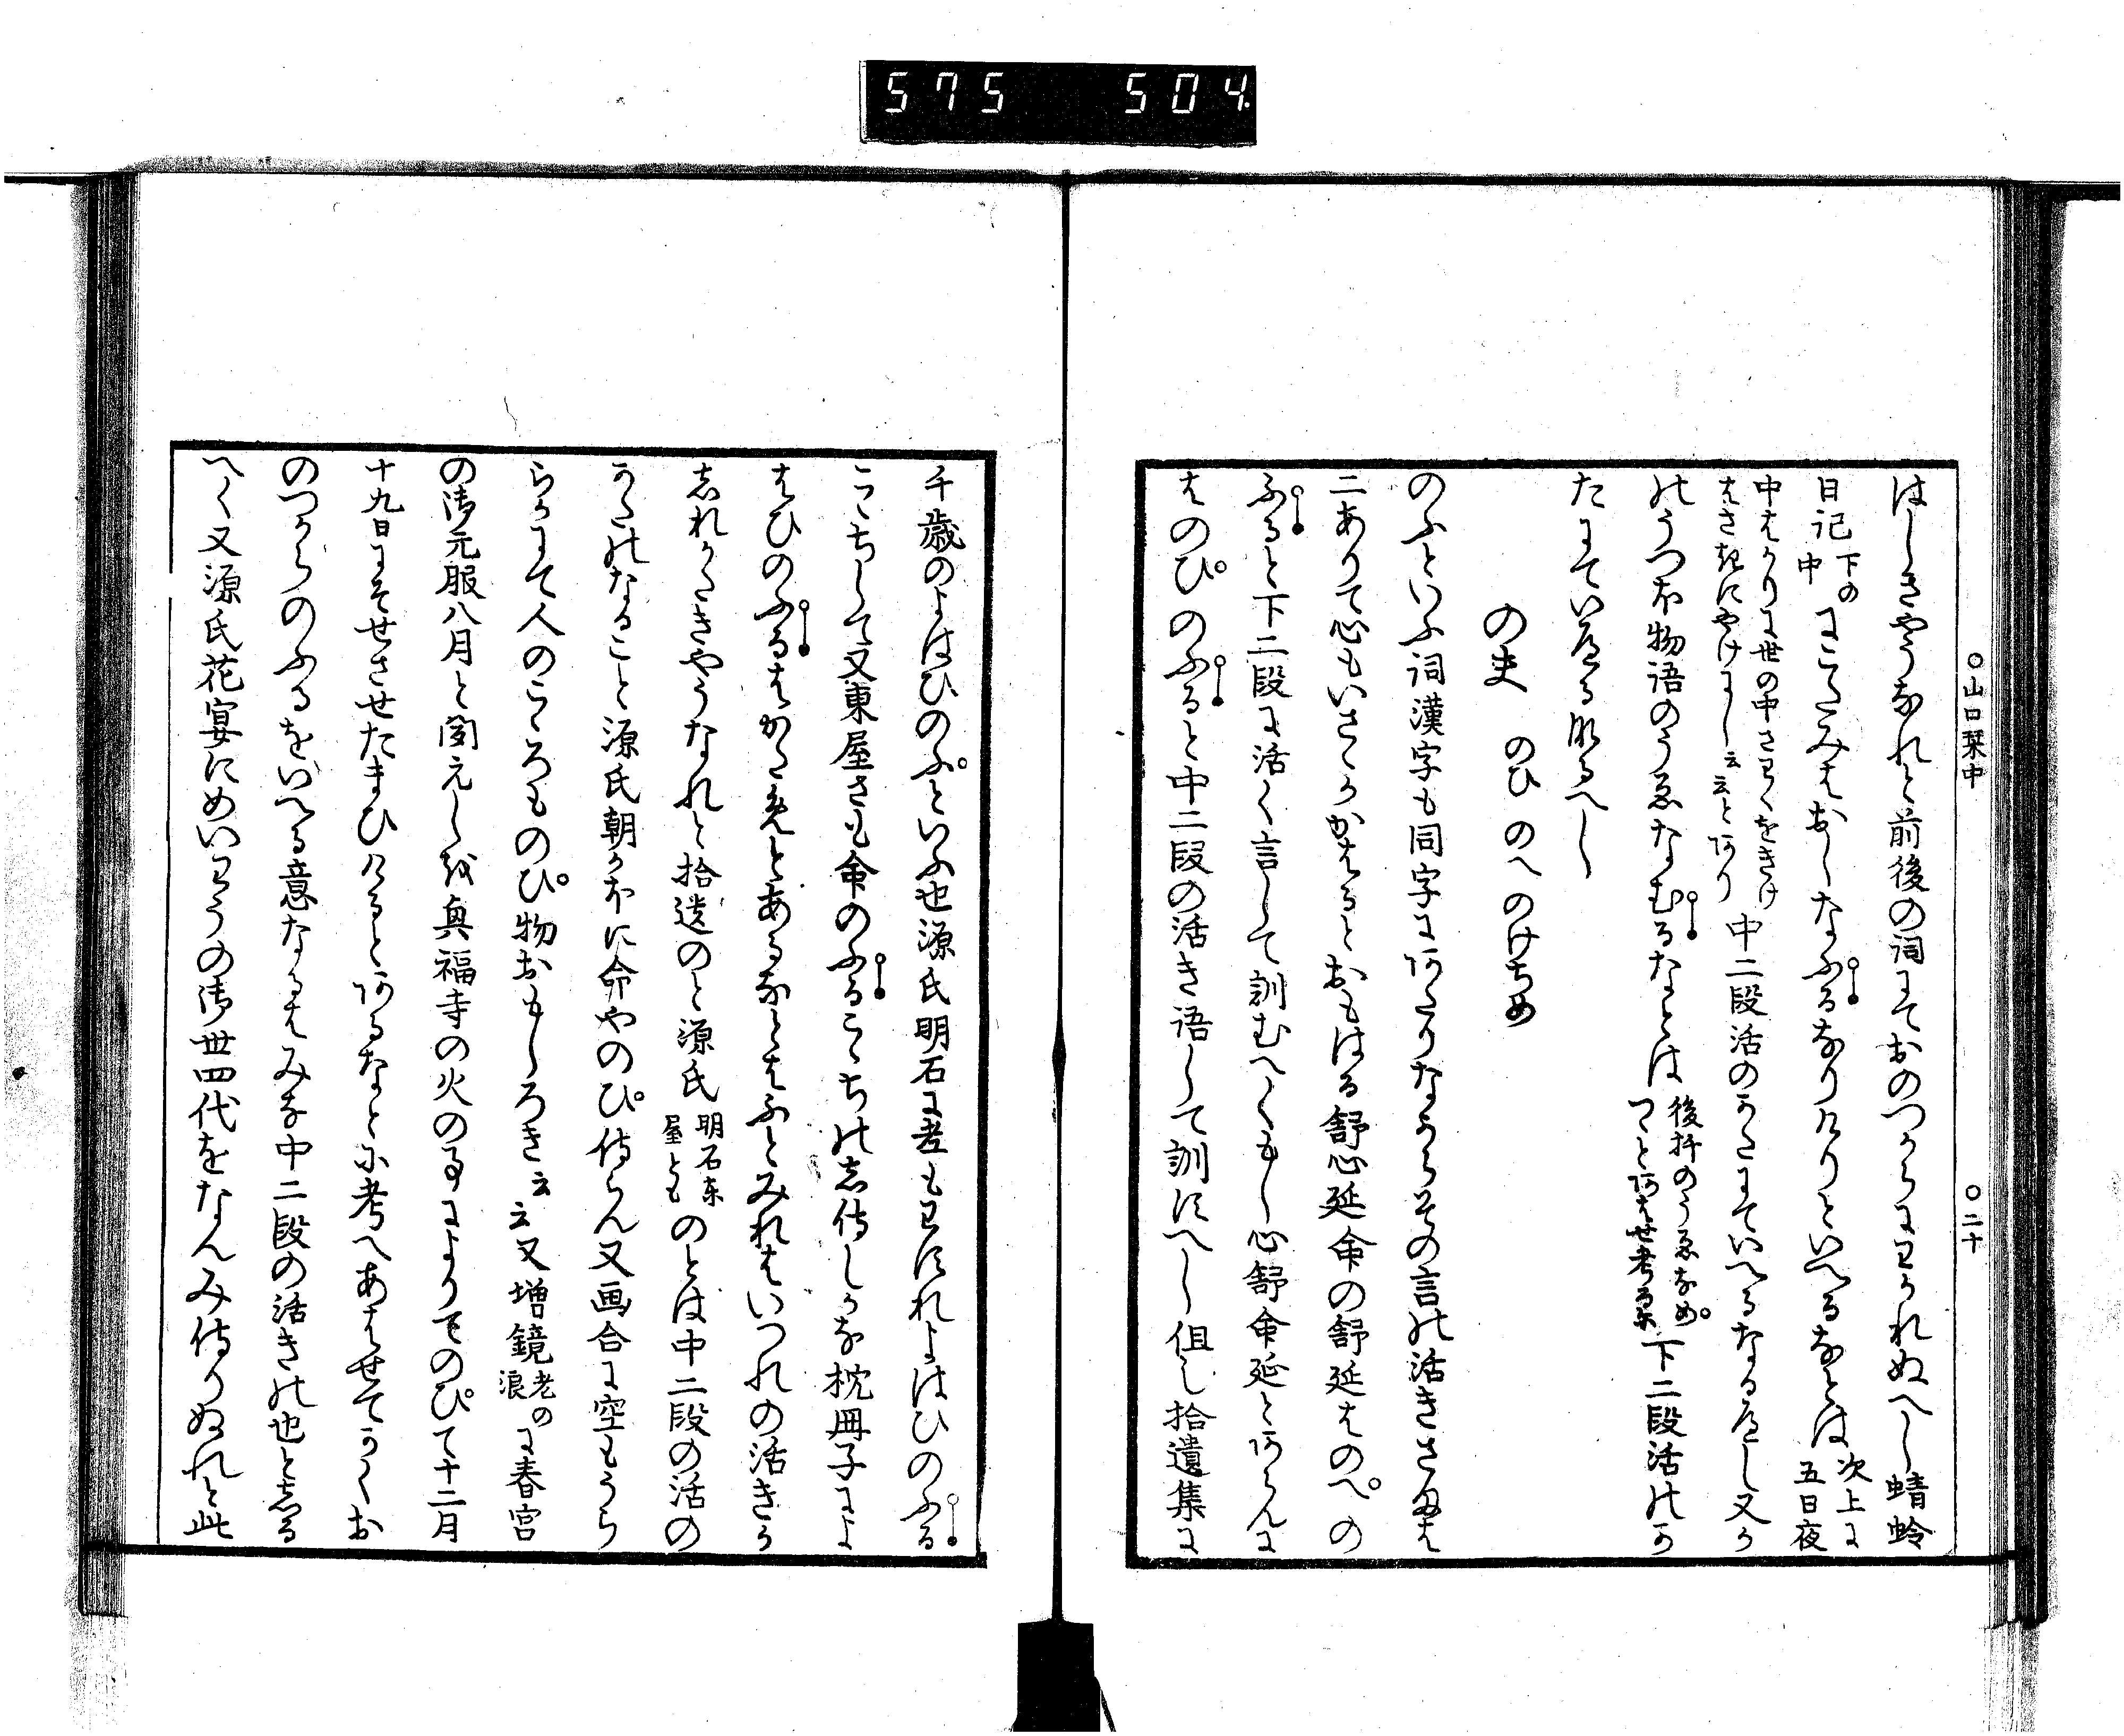 575 504
○山口栞中 ○二十
はしきやうなれと前後の詞にておのつからにわかれぬへし蜻蛉
日記下の中にこゝみはおしなふるなりけりといへるなとは次上に五日夜
中はかりに世の中さわくをきけはさきにやけにし云云とあり中二段活のかたにていへるなるへし又か
のうつほ物語のうゑなむるなとは後拝のうゑなめつとあはせ考る下二段活のか
たにていへる成へし
のふ のひ のへ のけちめ
のふといふ詞漢字も同字にあたりなからその言の活きさまは
二ありて心もいさゝかかはるとおもはる舒心延命の舒延はのへの
ふると下二段に活く言して訓むへくもし心舒命延とあらんに
はのひのふると中二段の活き語して訓にへし但し拾遺集に
千歳のよはひのふといふ也源氏明石に老もわすれよはひのふる
こゝちして又東屋さも命のふるこゝちのし侍しかな枕冊子によ
はひのふるはかへんとあるなとはふとみれはいつれの活きか
しれかたきやうなれと拾遺のと源氏明石東屋とものとは中二段の活の
かたのなること源氏朝かほに命やのひ侍らん又画合に空もうら
らかにて人のこゝろものひ物おもしろき云云又増鏡老の浪に春宮
の御元服八月と聞えしを興福寺の火の事によりてのひて十二月
十九日にそせさせたまひけるとあるなとに考へあはせてかくお
のつからのふるをいへる意なるはみな中二段の活きの也としる
へく又源氏花宴にめいわうの御世四代をなんみ侍りぬれと此